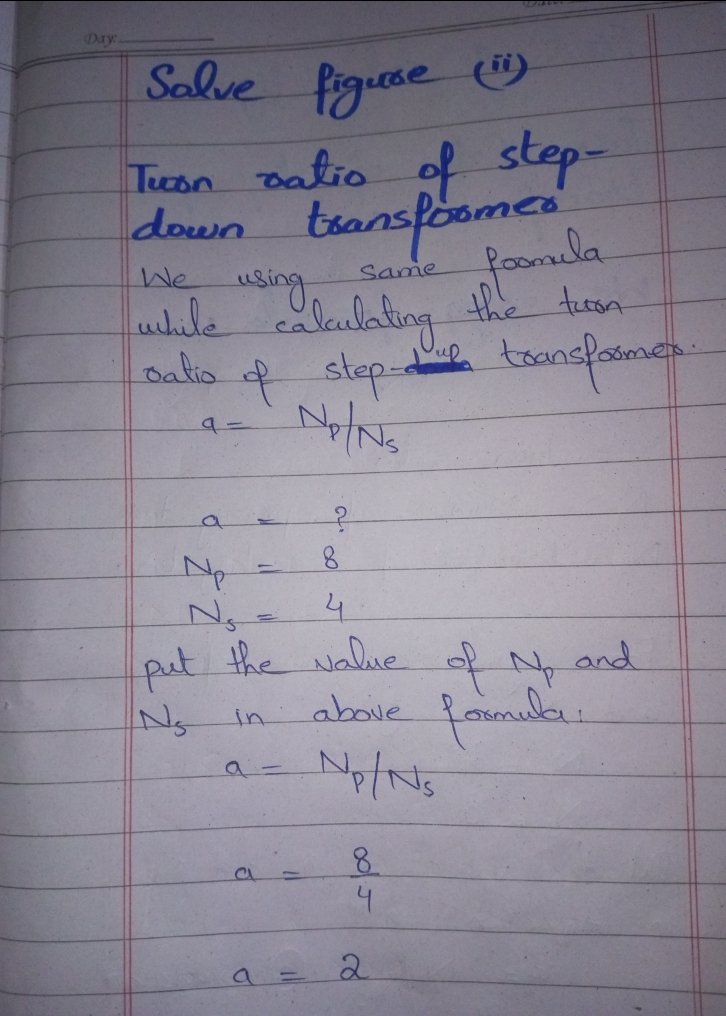 Day:
Solve figure (ii)
Turn ratio of step-
down transformer
We using same formula
while calculating the turn
ratio of step-up transformer.
a = Np/Ns
a = ?
Np = 8
Ns = 4
put the value of Np and
Ns in above formula:
a = Np/Ns
a = 8/4
a = 2